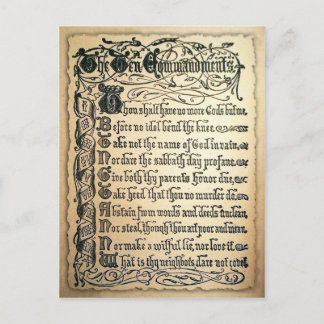 The Ten Commandments.
Thou shalt have no more Gods but me.
Before no idol bend the knee.
Take not the name of God in vain,
Nor dare the sabbath day profane.
Give both thy parents honor due,
Take heed that thou no murder do.
Abstain from words and deeds unclean,
Nor steal, though thou art poor and mean.
Nor make a wilful lie, nor love it.
What is thy neighbors dare not covet.